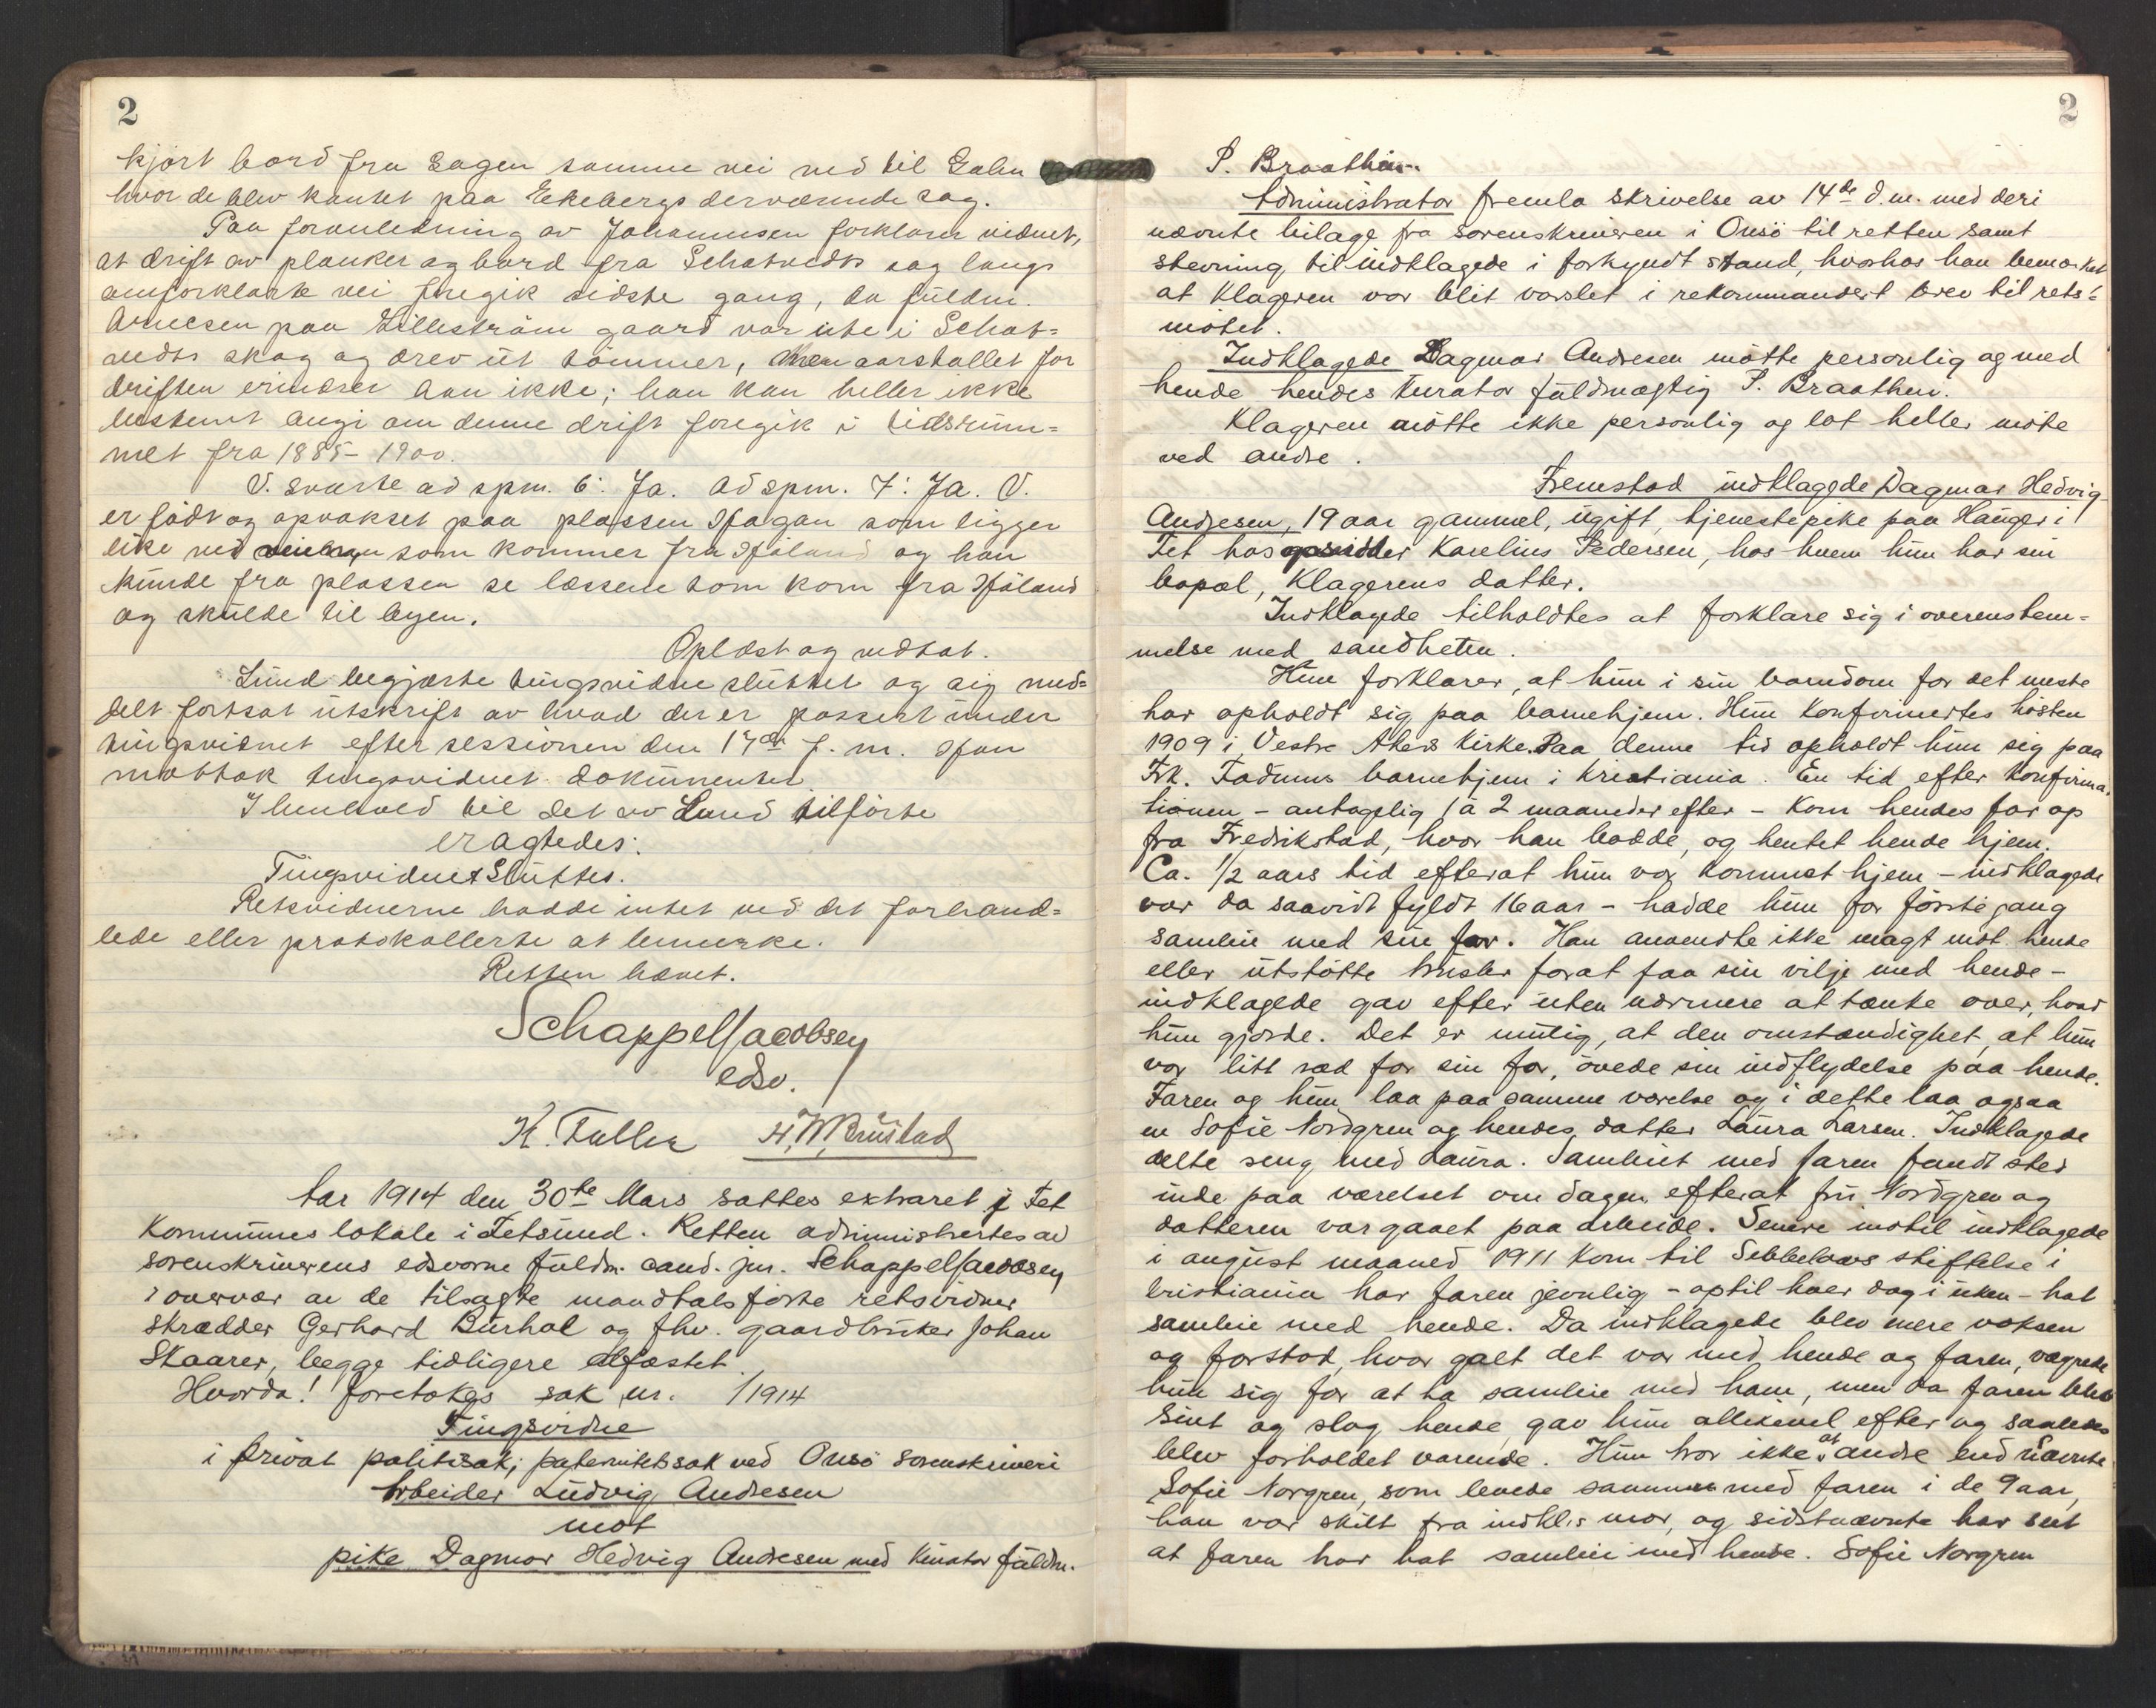 2
kjørt bord fra Sagen samme vei ned til Galen
hvor de blev kantet paa Ekebergs derværende sag.
Paa foranledning av Johannesen forklarer vidnet,
at drift av planker og bord fra Schatvedts sag langs
omforklarte vei foregik sidste gang, da fuldm.
Arnesen paa Lilleström gaard var ute i Schat=
vedts skog og drev ut tömmer, men aarstallet for
driften erindrer han ikke; han kan heller ikke
bestemt angi om denne drift foregik i tidsrum=
met fra 1885 - 1900.
V. svarte ad spm. 6: Ja. Ad spm. 7: Ja. V.
er født og opvokset paa plassen Hagan som ligger
like ved veien som kommer fra Høland og han
kunde fra plassen se læssene som kom fra Høland
og skulde til byen.
Oplæst og vedtat.
Lund begjærte tingsvidne sluttet og sig med=
delt fortsat utskrift av hvad der er passert under
tingsvidnet efter sessionen den 17de f. m. Han
mottok tingsvidnet dokumenter.
I henhold til det av Lund tilførte
eragtedes:
Tingsvidnet Sluttes.
Retsvidnerne hadde intet ved det forhand=
lede eller protokollerte at bemerke.
Retten hævet.
Schappel Jacobsen
edsv.
K. Faller H. W. Brustad
Aar 1914 den 30te Mars sattes extraret i Fet
Kommunes lokale i Fetsund. Retten administrertes av
sorenskriverens edsvorne fuldm. cand. jur. Schappel Jacobsen
i overvær av de tilsagte mandtalsførte retsvidner
skrædder Gerhard Burhol og fhv. gaardbruker Johan
Skaarer, begge tidligere edfæstet.
Hvorda! foretokes sak nr. /1914
Tingsvidne
i privat politisak; paternitetssak ved Onsø sorenskriveri
Arbeider Ludvig Andresen
mot
pike Dagmar Hedvig Andresen med kurator fuldm.
2
P. Braathen.
Administrator fremla skrivelse av 14de d.m. med deri
nævnte bilage fra sorenskriveren i Onsö til retten samt
stevning til indklagede i forkyndt stand, hvorhos han bemerket
at Klageren var blit varslet i rekommandert brev til rets=
mötet.
Indklagede Dagmar Andresen mötte personlig og med
hende hendes kurator fuldmægtig P. Braathen.
Klageren mötte ikke personlig og lot heller møte
ved andre.
Fremstod indklagede Dagmar Hedvig
Andresen, 19 aar gammel, ugift, tjenestepike paa Hauger i
Fet hos opsidder Karelius Pedersen, hos hvem hun har sin
bopæl, Klagerens datter.
Indklagede tilholdtes at forklare sig i overenstem=
melse med sandheten.
Hun forklarer, at hun i sin barndom for det meste
har opholdt sig paa barnehjem. Hun konfirmertes høsten
1909 i Vestre Akers Kirke. Paa denne tid opholdt hun sig paa
Frk. Fadums barnehjem i Kristiania. En tid efter konfirma-
tionen - antagelig 1 à 2 maaneder efter - kom hendes far op
fra Fredrikstad, hvor han bodde, og hentet hende hjem.
Ca. 1/2 aars tid efterat hun var kommet hjem - indklagede
var da saavidt fyldt 16 aar - hadde hun for förste gang
samleie med sin far. Han anvendte ikke magt mot hende
eller utstötte trusler forat faa sin vilje med hende -
indklagede gav efter uten nærmere at tænke over, hvad
hun gjorde. Det er mulig, at den omstændighet, at hun
var litt ræd for sin far, övede sin indflydelse paa hende.
Faren og hun laa paa samme værelse og i dette laa ogsaa
en Sofie Nordgren og hendes datter Laura Larsen. Indklagede
delte seng med Laura. Samleiet med faren fandt sted
inde paa værelset om dagen, efterat fru Nordgren og
datteren var gaaet paa arbeide. Senere indtil indklagede
i august maaned 1911 kom til Sebbelows stiftelse i
Kristiania har faren jevnlig - optil hver dag i uken - hat
samleie med hende. Da indklagede blev mere voksen
og forstod, hvor galt det var med hende og faren, vægrede
hun sig for at ha samleie med ham, men da faren blev
sint og slog hende, gav hun allikevel efter og saaledes
blev forholdet varende. Hun tror ikke at andre end nævnte
Sofie Norgren, som levede sammen med faren i de 9 aar,
han var skilt fra indkl.s mor, og sidstnævnte har set
at faren har hat samleie med hende. Sofie Norgren